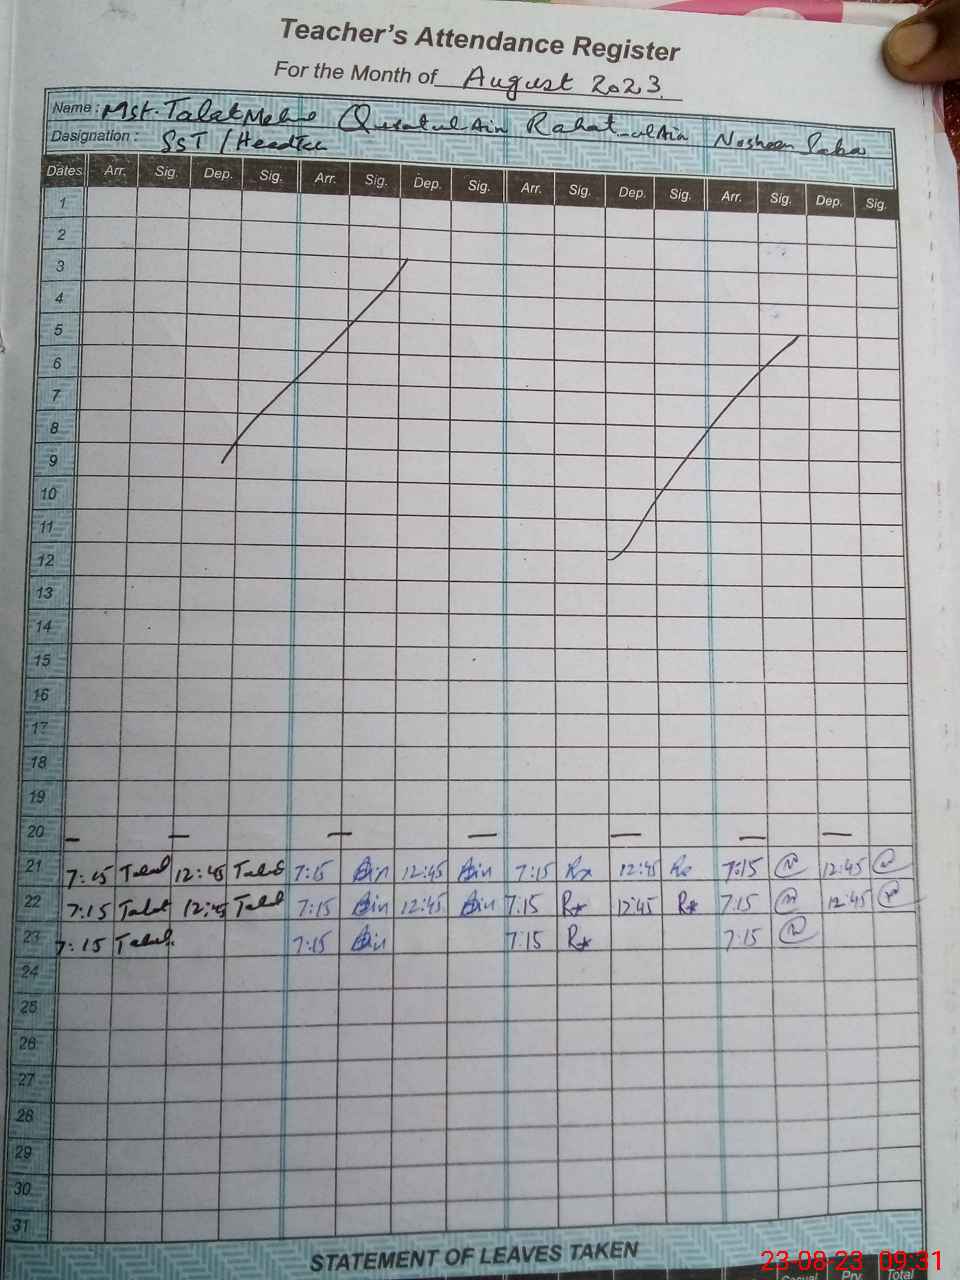 Teacher's Attendance Register
For the Month of August 2023
Name: Mst. Talat Quratul Ain Rahat-ul Ain Nosheen Saba
Designation: SST / Head
Dates Arr. Sig. Dep. Sig. Arr. Sig. Dep. Sig. Arr. Sig. Dep. Sig. Arr. Sig. Dep. Sig.
1
2
3
4
5
6
7
8
9
10
11
12
13
14
15
16
17
18
19
20 — — — — — — —
21 7:15 Talat 12:45 Talat 7:15 Ain 12:45 Ain 7:15 12:45 7:15 12:45
22 7:15 Talat 12:45 Talat 7:15 Ain 12:45 Ain 7:15 12:45 7:15 12:45
23 7:15 Talat 7:15 Ain 7:15 7:15
24
25
26
27
28
29
30
31
STATEMENT OF LEAVES TAKEN
23-08-23 09:31
Casual Prv. Total